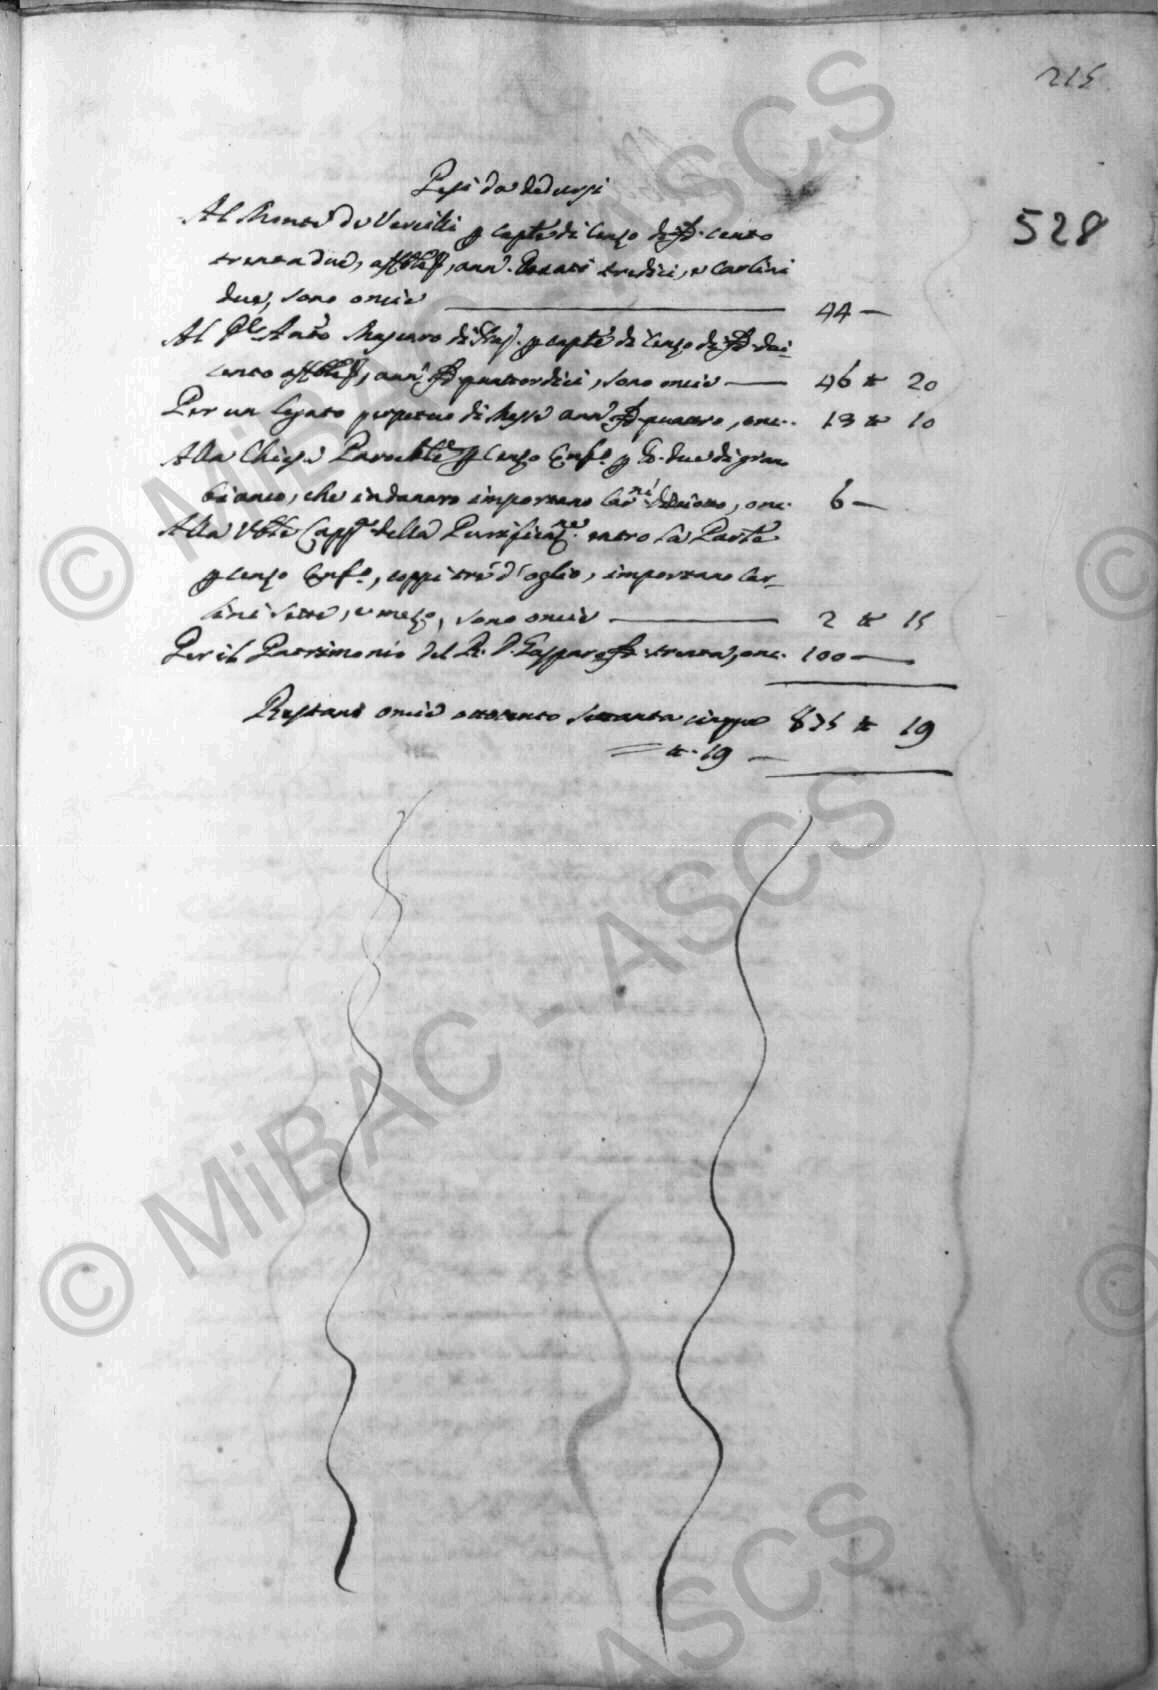 215
528
Pesi da dedursi
Al Monte de Vercilli p capt.e di censo di D. cento
trenta due, aff.bile, ann. docati tredici, e carlini
due, sono oncie — 44 —
Al Antò Mascaro di p capt.e di censo di D. due-
cento aff.bile, ann. D. quattordici, sono oncie — 46 tt 20
Per un legato perpetuo di Messe ann. D. quattro, onc. 13 tt 10
Alla Chiesa Paroch.le p censo Enf.o p due di grano
bianco, che in danaro importano Car.ni dieciotto, onc. 6 —
Alla Capp.a della Purificaz.ne entro la
p censo Enf.o, coppi tre d'oglio, importano Car-
lini sette, e mezo, sono oncie — 2 tt 15
Per il Patrimonio del R. D. Gasparo D. trenta, onc. 100 —
Restano oncie ottocento settanta cinque 875 tt 19
= tt. 19 —
© MiBAC - ASCS
© MiBAC - ASCS
ASCS
©
©